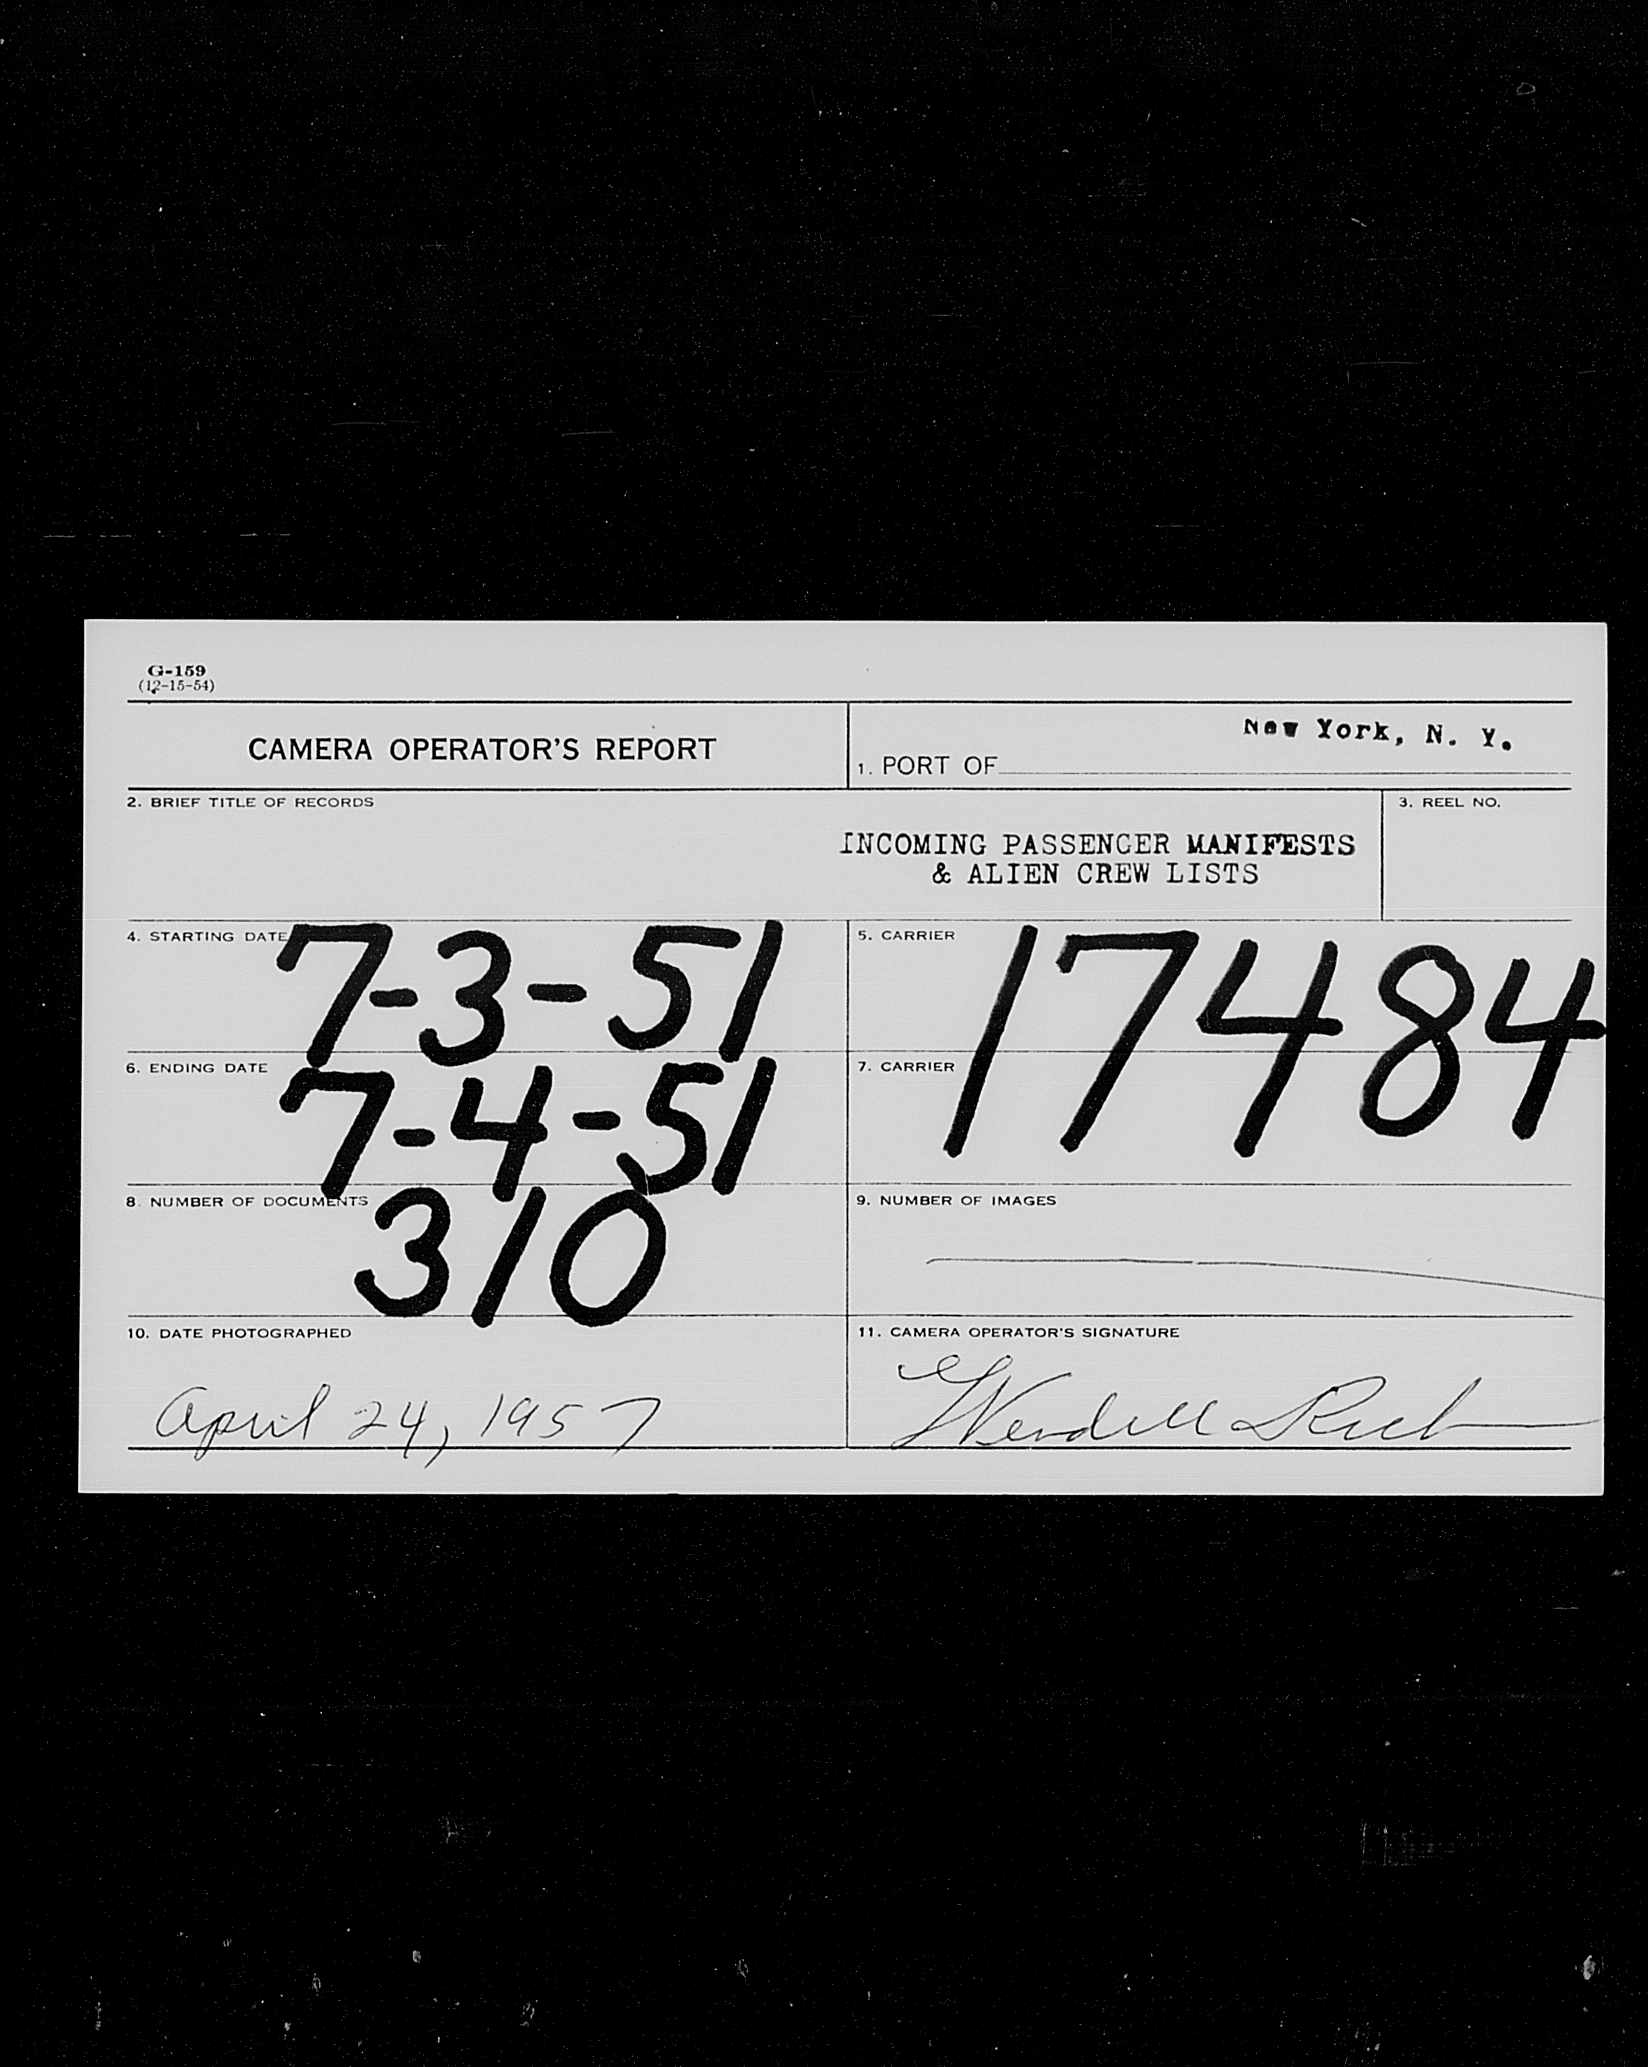 G-159
(12-15-54)
CAMERA OPERATOR'S REPORT
1. PORT OF New York, N. Y.
2. BRIEF TITLE OF RECORDS
INCOMING PASSENGER MANIFESTS
& ALIEN CREW LISTS
3. REEL NO.
4. STARTING DATE 7-3-51
5. CARRIER 17484
6. ENDING DATE 7-4-51
7. CARRIER
8. NUMBER OF DOCUMENTS 310
9. NUMBER OF IMAGES
10. DATE PHOTOGRAPHED
April 24, 1957
11. CAMERA OPERATOR'S SIGNATURE
Wendell